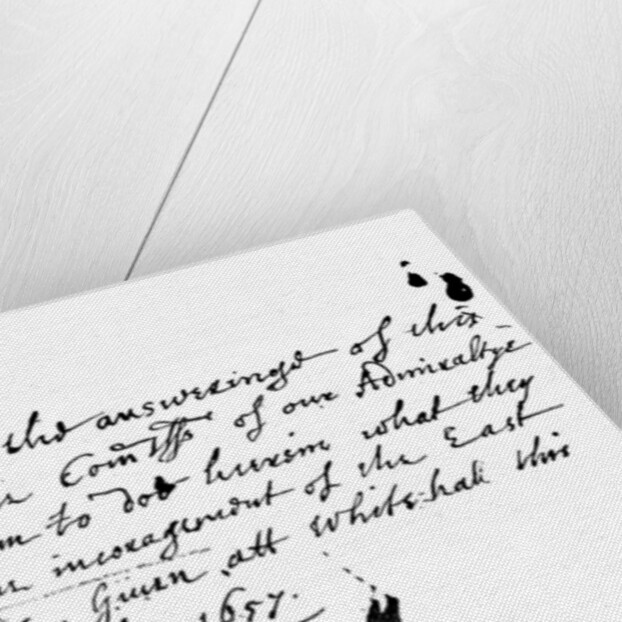 the answeringe of this
Comrs of our Admiraltye
to doe hereine what they
incoragement of the East
Given att Whitehall this
1657.